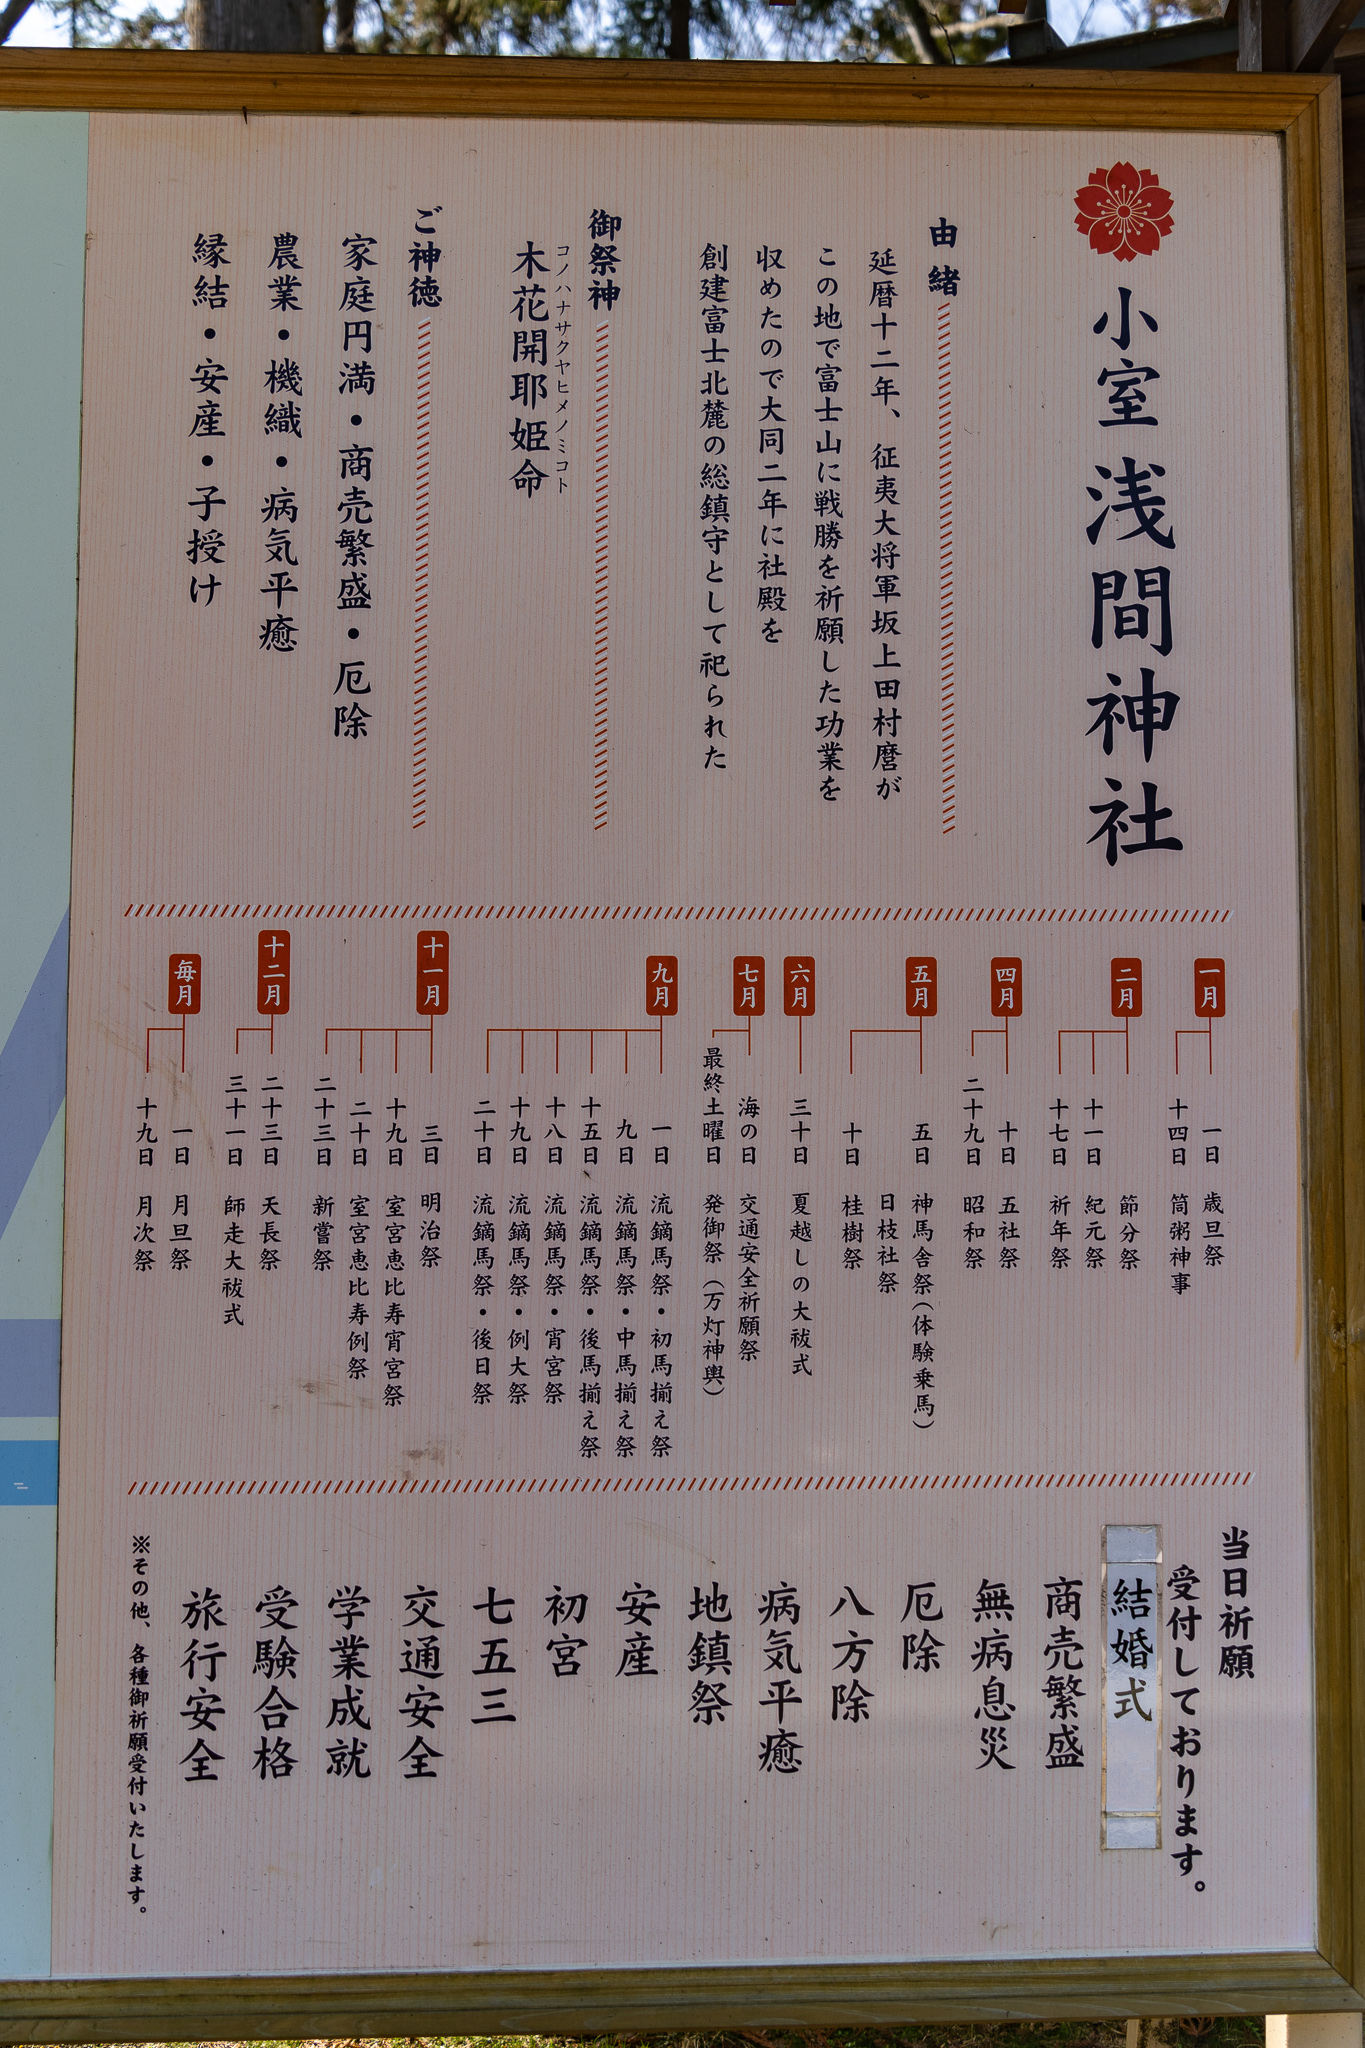 小室浅間神社
由緒
延暦十二年、征夷大将軍坂上田村麿が
この地で富士山に戦勝を祈願した功業を
収めたので大同二年に社殿を
創建富士北麓の総鎮守として祀られた
御祭神
コノハナサクヤヒメノミコト
木花開耶姫命
ご神徳
家庭円満・商売繁盛・厄除
農業・機織・病気平癒
縁結・安産・子授け
一月
一日 歳旦祭
十四日 筒粥神事
二月
節分祭
十一日 紀元祭
十七日 祈年祭
四月
十日 五社祭
二十九日 昭和祭
五月
五日 神馬舎祭(体験乗馬)
日枝社祭
十日 桂樹祭
六月
三十日 夏越しの大祓式
七月
海の日 交通安全祈願祭
最終土曜日 発御祭(万灯神輿)
九月
一日 流鏑馬祭・初馬揃え祭
九日 流鏑馬祭・中馬揃え祭
十五日 流鏑馬祭・後馬揃え祭
十八日 流鏑馬祭・宵宮祭
十九日 流鏑馬祭・例大祭
二十日 流鏑馬祭・後日祭
十一月
三日 明治祭
十九日 室宮恵比寿宵宮祭
二十日 室宮恵比寿例祭
二十三日 新嘗祭
十二月
二十三日 天長祭
三十一日 師走大祓式
毎月
一日 月旦祭
十九日 月次祭
当日祈願
受付しております。
結婚式
商売繁盛
無病息災
厄除
八方除
病気平癒
地鎮祭
安産
初宮
七五三
交通安全
学業成就
受験合格
旅行安全
※その他、各種御祈願受付いたします。